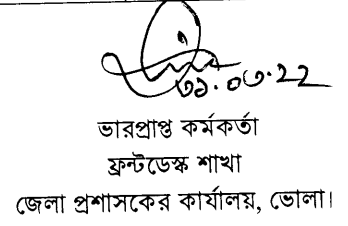 ৩১.০৩.২২
ভারপ্রাপ্ত কর্মকর্তা
ফ্রন্টডেস্ক শাখা
জেলা প্রশাসকের কার্যালয়, ভোলা।